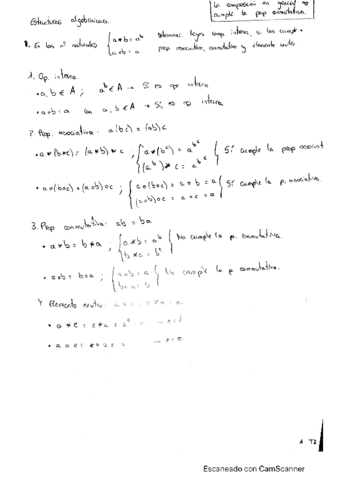 La composición en general no
cumple la prop conmutativa.
Estructuras algebraicas.
1. En los nº naturales { a * b = a^b
a ∘ b = a
leyes comp. interna, si los cumple
prop asociativa, conmutativa y elemento neutro
1. Op. interna
• a, b ∈ A ; a^b ∈ A → Sí es op interna
• a ∘ b = a con a, b ∈ A → Sí es op interna
2. Prop. asociativa: a(bc) = (ab)c
• a * (b * c) = (a * b) * c ; { a * (b^c) = a^b^c
(a^b) * c = a^b^c } Sí cumple la prop asociat
• a ∘ (b ∘ c) = (a ∘ b) ∘ c ; { a ∘ (b ∘ c) = a ∘ b = a
(a ∘ b) ∘ c = a ∘ c = a } Sí cumple la p. asociativa
3. Prop conmutativa: ab = ba
• a * b = b * a ; { a * b = a^b
b * a = } No cumple la p. conmutativa.
• a ∘ b = b ∘ a ; { a ∘ b = a
b ∘ a = b } No cumple la p conmutativa.
4 Elemento neutro: a e = e a = a
• a * e = e * a = a
• a ∘ e = e ∘ a = a
T2
Escaneado con CamScanner